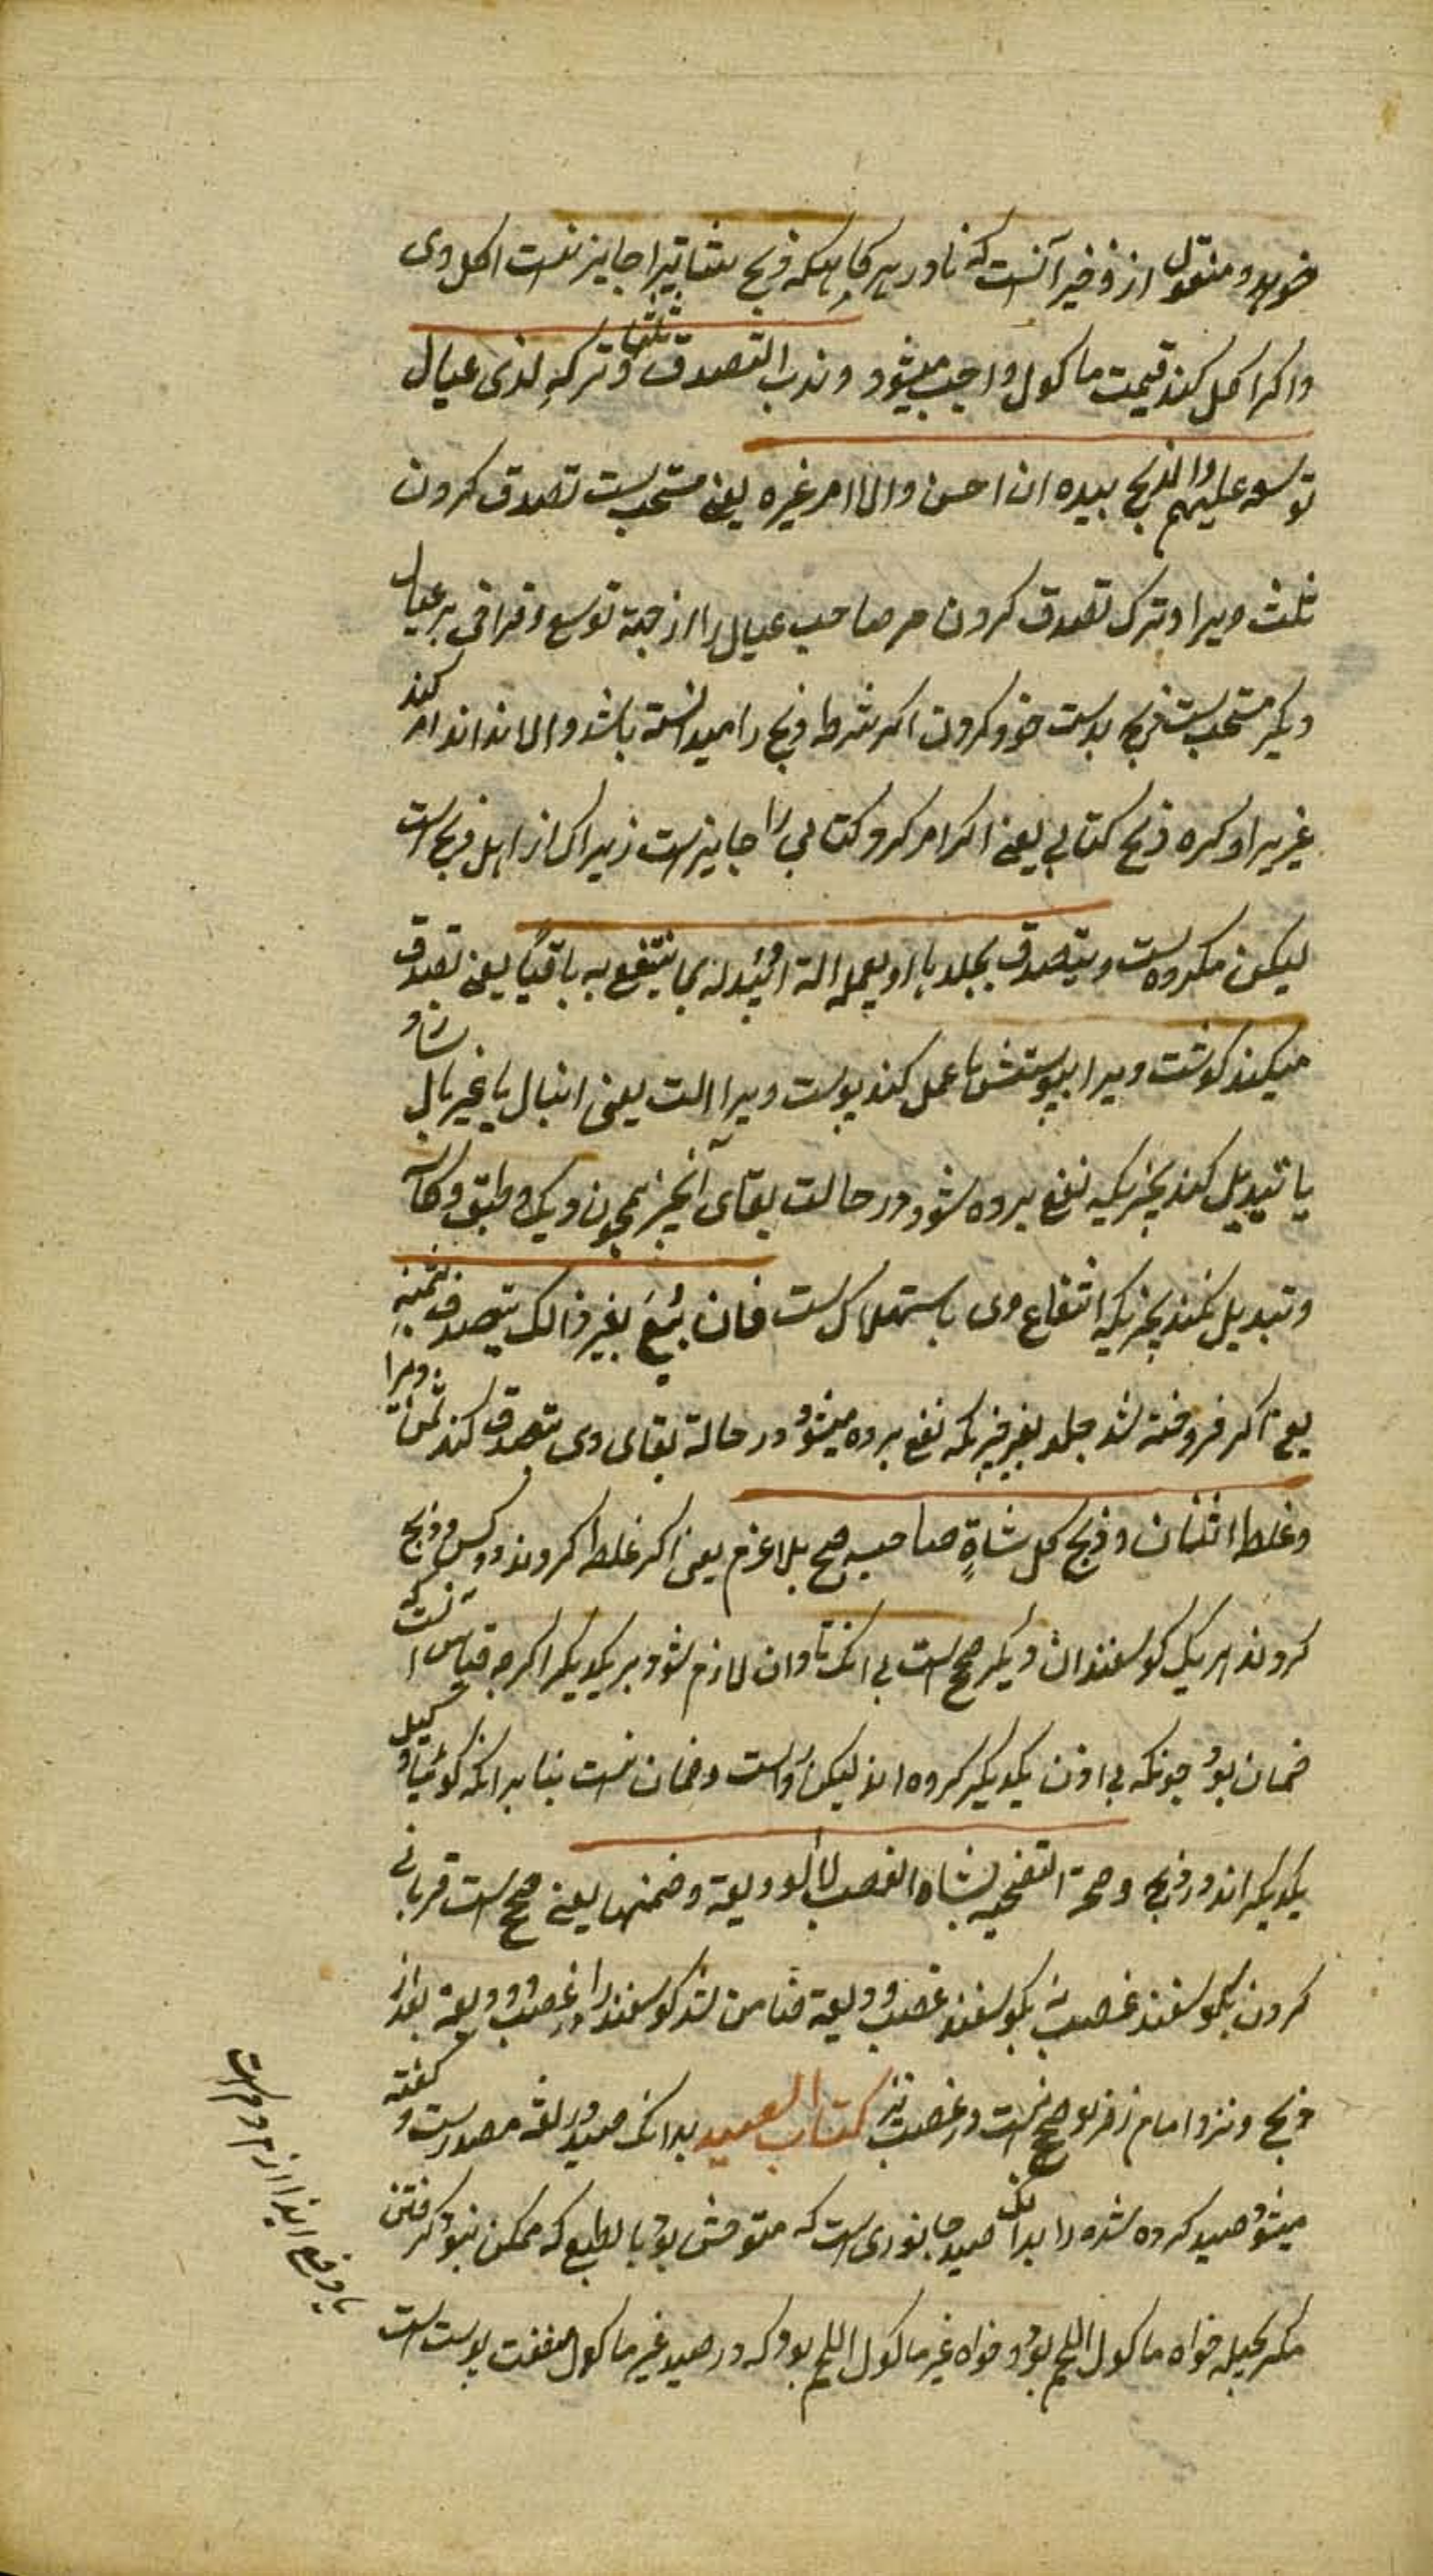 خورد و منقول از ذخیره آنست که نادر هر کاهیکه ذبح بنفاتیرا جایز نیست اکل وی
و اکر اکل کند قیمت ماکول واجب میشود و ندب التصدق بثلثها و ترکه لذی عیال
توسعه علیهم والذبح بیده ان احسن والا امر غیره یعنی مستحب است تصدق کردن
ثلث ویرا و ترک تصدق کردن مر صاحب عیال را از جهة توسع و فراخی بر عیال
دیکر مستحب است ذبح بدست خود کردن اکر شرط ذبح را میدانسته باشد والا نداند امر کند
غیریرا و کره ذبح کتابی یعنی اکر امر کرد کتابی را جایز است زیرا که از اهل ذبح است
لیکن مکروه است و یتصدق بجلدها او یعمله آلة او یبدله بما ینتفع به باقیاً یعنی تصدق
میکند کوشت ویرا بپوستش یا عمل کند پوست ویرا الت یعنی انبان یا غیربال سازد
یا تبدیل کند بچیزیکه نفع برده شود در حالت بقای آنچیز همچون دیک و طبق و کاسه
و تبدیل نکند بچیزیکه انتفاع وی باستهلاک است فان بیع بغیر ذالک یتصدق بثمنه
یعنی اکر فروخته شد جلد بغیر چیزیکه نفع برده میشود در حالة بقای وی تصدق کند ثمن ویرا
و غلط اثنان و ذبح کل شاةٍ صاحبه صح بلا غرم یعنی اکر غلط کردند دو کس و ذبح
کردند هر یک کوسفندان دیکر صحیح است بی انکه تاوان لازم شود بر یکدیکر اکرچه قیاس آنست که
ضمان بود چونکه بی اذن یکدیکر کرده اند لیکن رواست و ضمان نیست بنا بر انکه کوئیا وکیل
یکدیکر اند در ذبح و صحة التضحیه بشاة الغصب لا الودیعة و ضمنها یعنی صحیح است قربانی
کردن بکوسفند غصب نه بکوسفند ودیعة ضامن شد کوسفند را در غصب و ودیعة بعد از
ذبح و نزد امام زفر صحیح نیست در غصب نیز کتاب الصید بدانکه صید در لغه مصدر است و کفته
میشود صید کرده شده را بدانکه صید جانوری است که متوحش بود بالطبع که ممکن نبود کرفتن
مکر بحیله خواه ماکول اللحم بود و خواه غیر ماکول اللحم بود که در صید غیر ماکول منفعت پوست است
یا دفع ایذا از مردم است